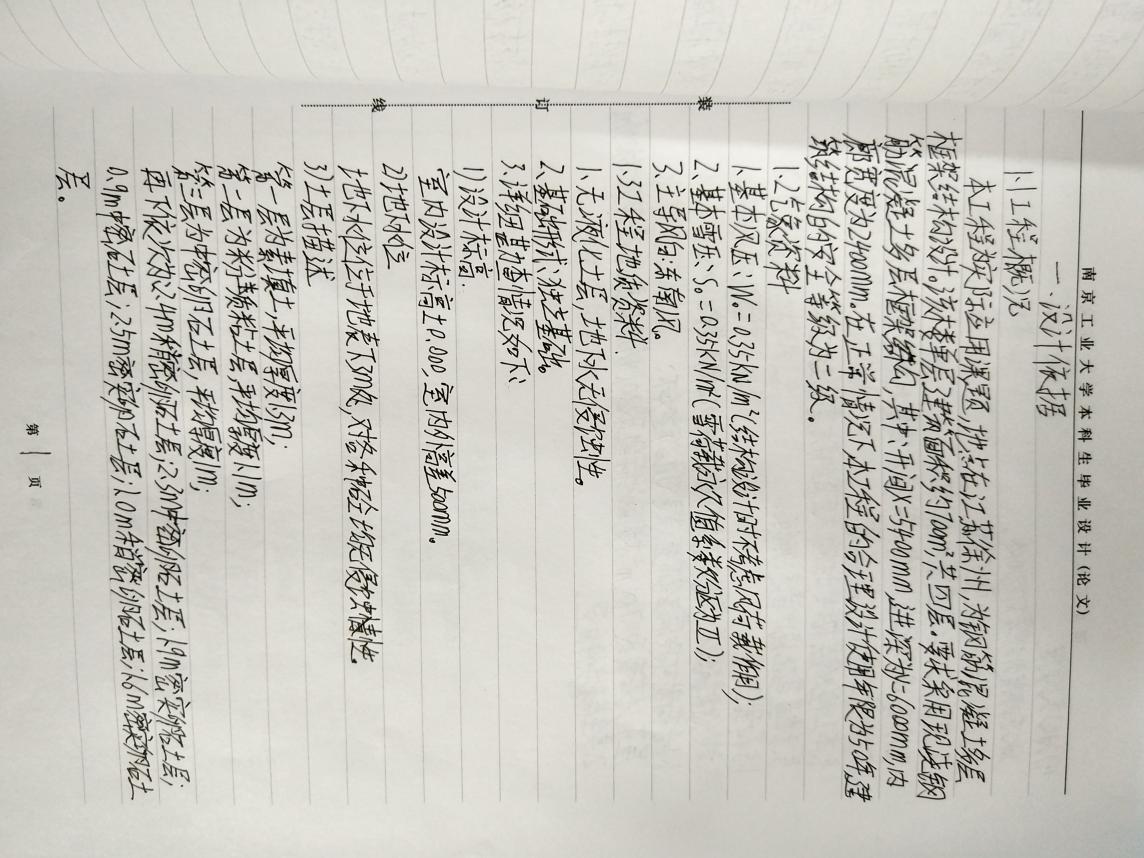 南京工业大学本科生毕业设计(论文)
一、设计依据
1.1工程概况
本工程为实际应用课题,地点在江苏徐州,为钢筋混凝土多层
框架结构设计。该楼单层建筑面积约700m²,共四层。要求采用现浇钢
筋混凝土多层框架结构,其中,开间X=5400mm,进深为Y=6000mm,内
廊宽度为2400mm。在正常情况下,本工程的合理设计使用年限为50年,建
筑结构的安全等级为二级。
1.2气象资料
1.基本风压:W₀=0.35kN/m²(结构设计时不考虑风荷载作用);
2.基本雪压:S₀=0.35kN/m²(雪荷载准永久值系数分区为Ⅱ);
3.主导风向:东南风。
1.3工程地质资料
1.无液化土层,地下水无侵蚀性。
2.基础形式:独立基础。
3.详细勘查情况如下:
1)设计标高
室内设计标高±0.000,室内外高差600mm。
2)地下水位
地下水位位于地表下8m处,对各种砼均无侵蚀性。
3)土层描述
第一层为素填土,平均厚度1.3m;
第二层为粉质粘土层,平均厚度1.1m;
第三层为中密卵石土层,平均厚度1m;
再下依次为2.4m稍密卵石土层;2.3m中密卵石土层;1.9m密实卵石土层;
0.9m中密石土层;2.5m密实卵石土层;1.0m稍密卵石土层;1.6m密实卵石土
层。
第 1 页
装
订
线